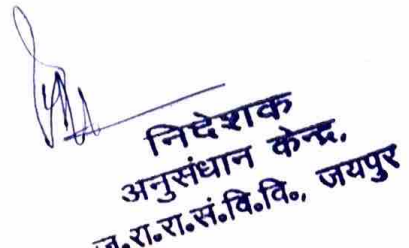 निदेशक
अनुसंधान केन्द्र,
ज.रा.रा.सं.वि.वि., जयपुर